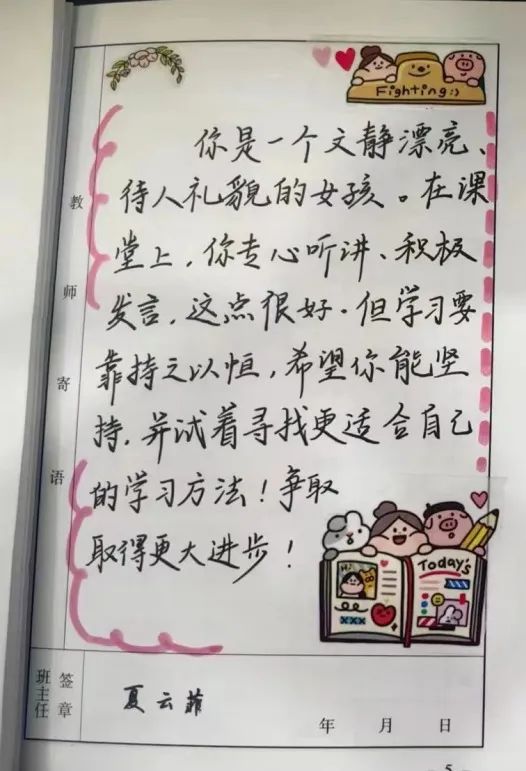 Fighting:)
教师寄语
你是一个文静漂亮、
待人礼貌的女孩。在课
堂上，你专心听讲、积极
发言，这点很好.但学习要
靠持之以恒，希望你能坚
持，并试着寻找更适合自己
的学习方法！争取
取得更大进步！
Today's
班主任
签章
夏云菲
年 月 日
5